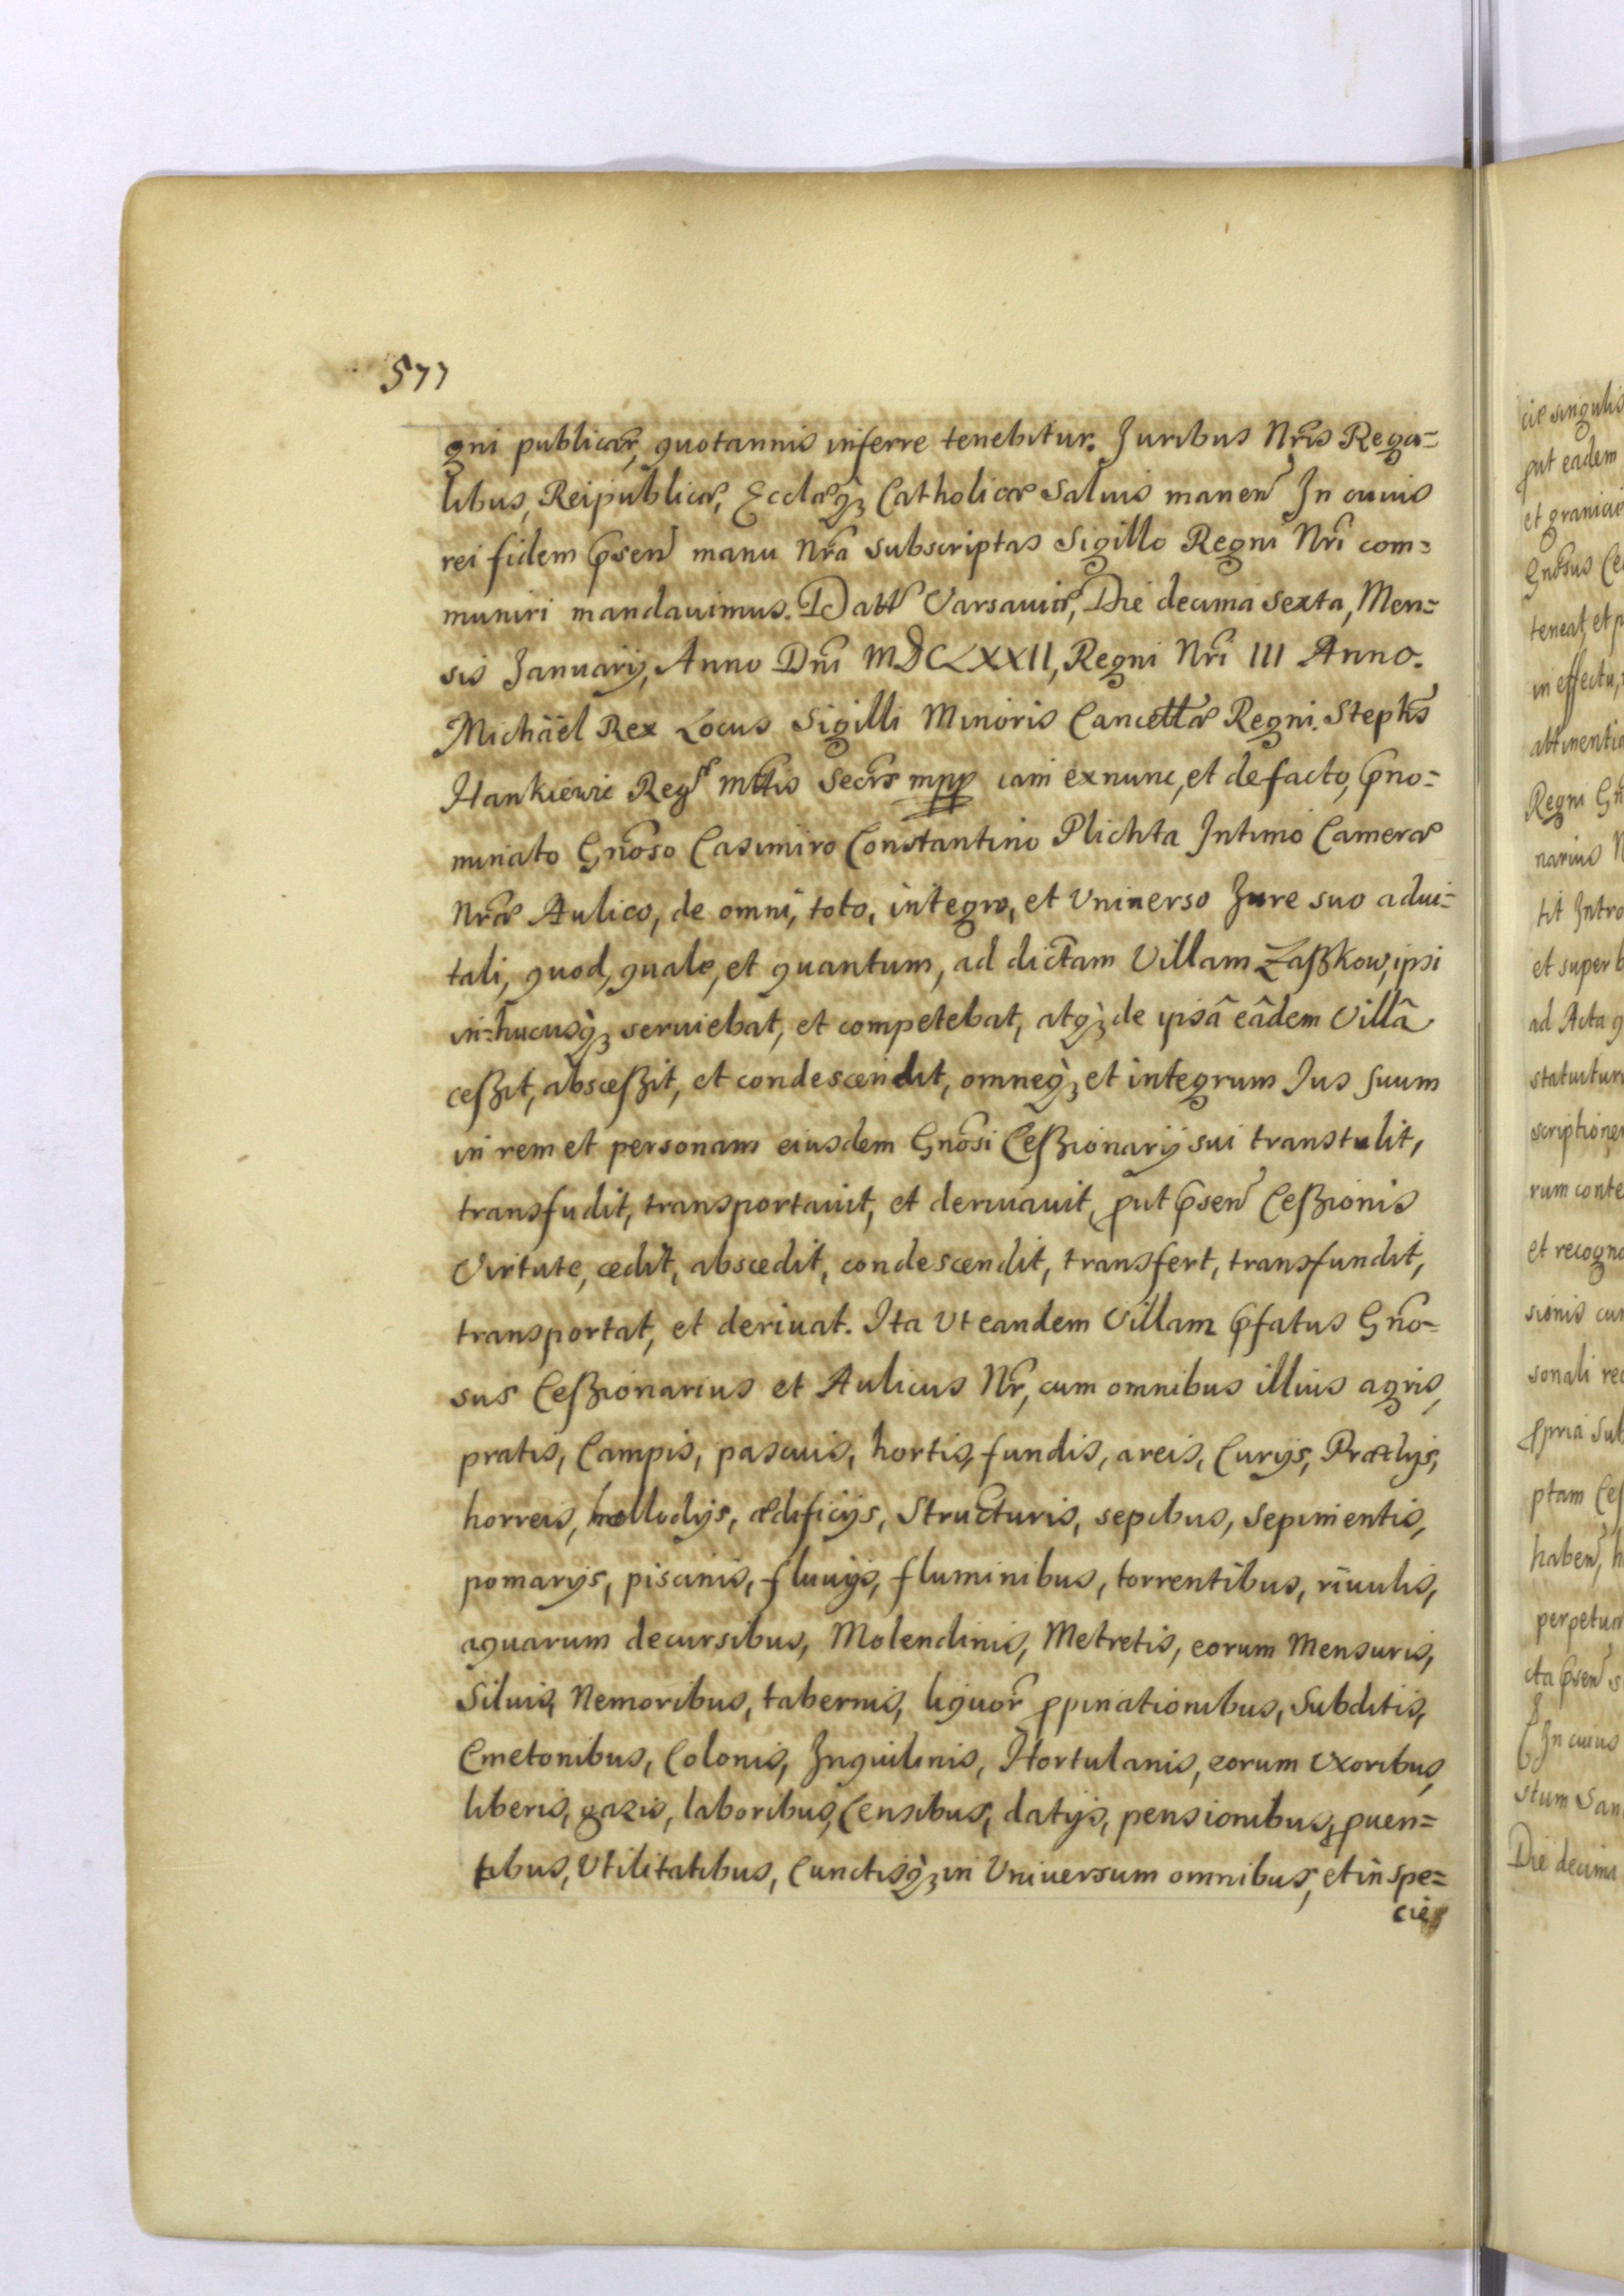 577
gni publicæ, quotannis inferre tenebitur. Juribus Nr̃is Rega=
libus, Reipublicæ, Ecclæq̃ Catholicæ Saluis manen̄ In cuius
rei fidem p̃sen̄ manu Nr̃a subscriptas Sigillo Regni Nr̃i com=
muniri mandauimus. Datt Varsauiæ, Die decima Sexta, Men=
sis Januarij, Anno Dnĩ MDCLXXII, Regni Nr̃i III Anno.
Michäel Rex Locus Sigilli Minoris Cancellæ Regni. Stephs̃
Hankiewic Regæ Mttis Secr̃s mpp iam exnunc, et defacto, p̃no=
minato Gnõso Casimiro Constantino Plichta Intimo Cameræ
Nr̃æ Aulico, de omni, toto, integro, et Vniuerso Jure suo adui=
tali, quod, quale, et quantum, ad dictam Villam Zaßkow, ipsi
in=hucusq̀ȝ seruiebat, et competebat, atq̀ȝ de ipsâ eâdem Villâ
ceßit, absceßit, et condescendit, omneq̀ȝ et integrum Jus suum
in rem et personam eiusdem Gnõsi Ceßionarij sui transtulit,
transfudit, transportauit, et deriuauit, put p̃sen̄ Ceßionis
Virtute, cedit, abscedit, condescendit, transfert, transfundit,
transportat, et deriuat. Ita Vt eandem Villam p̃fatus Gnõ=
sus Ceßionarius et Aulicus Nr̃, cum omnibus illius agris,
pratis, Campis, pascuis, hortis, fundis, areis, Curijs, Prædijs,
horreis, allodijs, ædificijs, Structuris, sepibus, Sepimentis,
pomarijs, piscinis, fluuijs, fluminibus, torrentibus, riuulis,
aquarum decursibus, Molendinis, Metretis, eorum Mensuris,
Siluis, Nemoribus, tabernis, liquor̃ ppinationibus, Subditis,
Cmetonibus, Colonis, Inquilinis, Hortulanis, eorum Vxoribus,
liberis, gazis, laboribus, Censibus, datijs, pensionibus, puen=
tibus, Vtilitatibus, Cunctisq̀ȝ in Vniuersum omnibus, et in spe=
cie